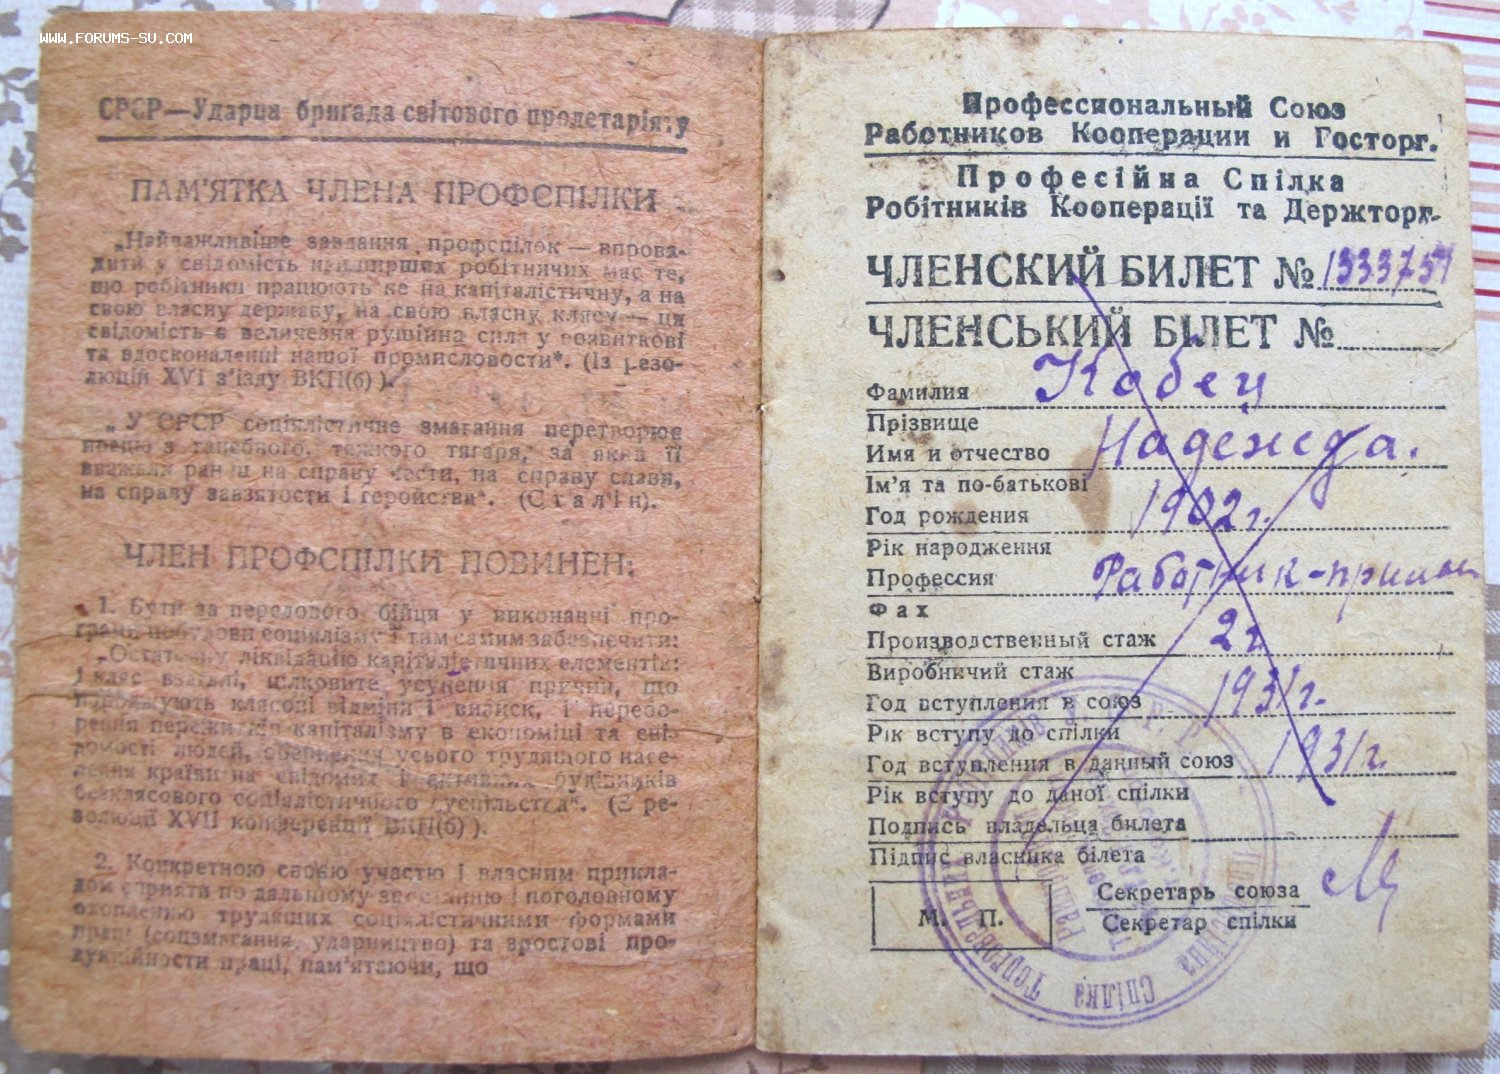 WWW.FORUMS-SU.COM
СРСР—Ударна бриґада світового пролетаріяту
ПАМ'ЯТКА ЧЛЕНА ПРОФСПІЛКИ
„Найважливіше завдання профспілок — впрова-
дити у свідомість найширших робітничих мас те,
що робітники працюють не на капіталістичну, а на
свою власну державу, на свою власну клясу — ця
свідомість є величезня рушійна сила у розвиткові
та вдосконаленні нашої промисловости“. (Із резо-
люцій XVI з'їзду ВКП(б) ).
„У СРСР соціялістичне змагання перетворює
працю з ганебного, тяжкого тягаря, за який її
вважали раніш на справу чести, на справу слави,
на справу завзятости і геройства“. (Сталін).
ЧЛЕН ПРОФСПІЛКИ ПОВИНЕН:
1. Бути за передового бійця у виконанні про-
грами побудови соціялізму і тим самим забезпечити:
„Остаточну ліквідацію капіталістичних елементів:
і кляс взагалі, цілковите усунення причин, що
породжують клясові відміни і визиск, і перебо-
рення пережитків капіталізму в економіці та сві-
домості людей, обернення усього трудящого насе-
лення країни на свідомих і активних будівників
безклясового соціялістичного суспільства“. (З ре-
золюції XVII конференції ВКП(б) ).
2. Конкретною своєю участю і власним прикла-
дом сприяти по дальшому зростанню і поголовному
охопленню трудящих соціялістичними формами
праці (соцзмагання, ударництво) та зростові про-
дукційности праці, пам'ятаючи, що
Профессиональный Союз
Работников Кооперации и Госторг.
Професійна Спілка
Робітників Кооперації та Держторг.
ЧЛЕНСКИЙ БИЛЕТ № 1333757
ЧЛЕНСЬКИЙ БІЛЕТ №
Фамилия Кобец
Прізвище
Имя и отчество Надежда.
Ім'я та по-батькові
Год рождения 1902 г.
Рік народження
Профессия Работник-прилав
Фах
Производственный стаж 2 г.
Виробничий стаж
Год вступления в союз 1931 г.
Рік вступу до спілки
Год вступления в данный союз 1931 г.
Рік вступу до даної спілки
Подпись владельца билета
Підпис власника білета
М. П.
Секретарь союза
Секретар спілки
спілка Торговельних